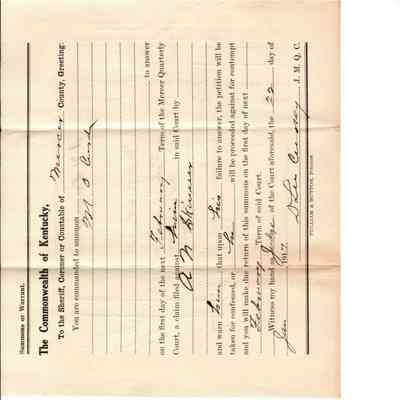 Summons or Warrant.
The Commonwealth of Kentucky,
To the Sheriff, Coroner or Constable of Mercer County, Greeting:
You are commanded to summon M O
to answer
on the first day of the next February Term of the Mercer Quarterly
Court, a claim filed against him in said Court by
A N Skinner
and warn him that upon his failure to answer, the petition will be
taken for confessed, or he will be proceeded against for contempt
and you will make due return of this summons on the first day of next
February Term of said Court.
Witness my hand as Judge of the Court aforesaid, the 22 day of
Jan 1917
J. M. Q. C.